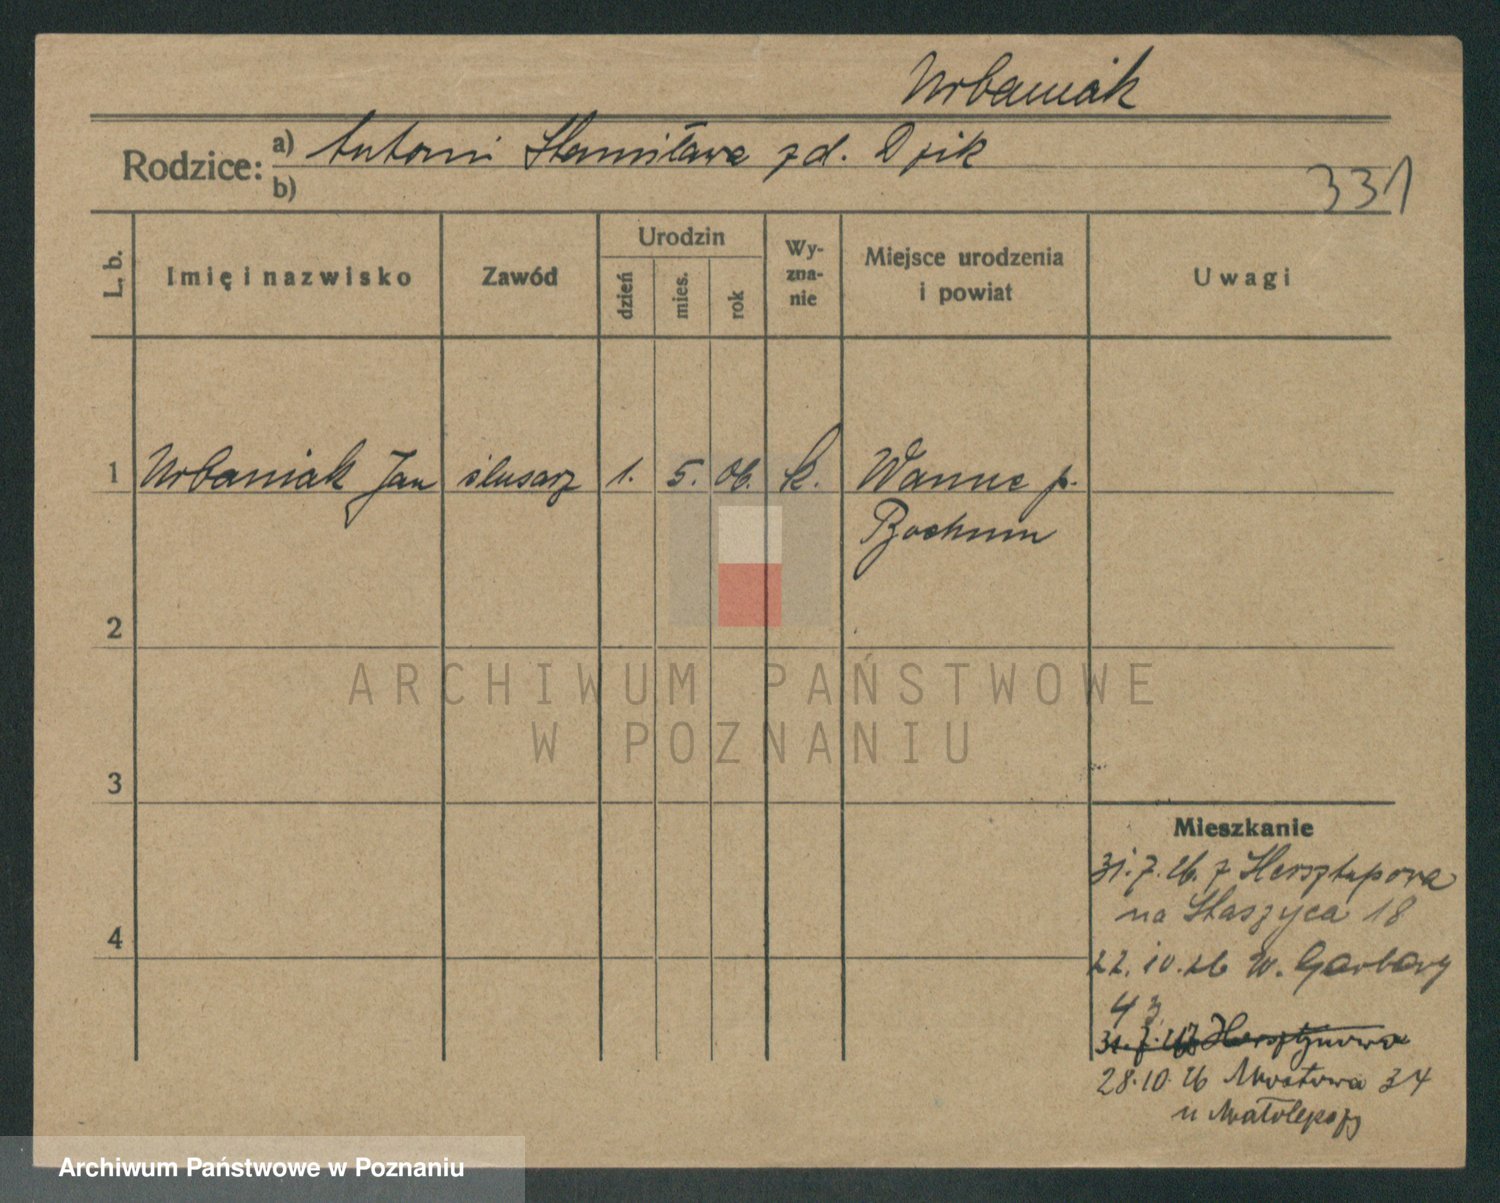 Urbaniak
Rodzice: a) Antoni Stanisława z d. Dzik
b)
331
L. b. Imię i nazwisko Zawód Urodzin dzień mies. rok Wy-zna-nie Miejsce urodzenia i powiat Uwagi
1 Urbaniak Jan ślusarz 1. 5. 06. k. Wanne p.
Bochum
2
3
4
Mieszkanie
31.7.26. z Hersztupowa
na Staszyca 18
22.10.26 W. Garbary
43
28.10.26 Mostowa 34
u
ARCHIWUM PAŃSTWOWE
W POZNANIU
Archiwum Państwowe w Poznaniu